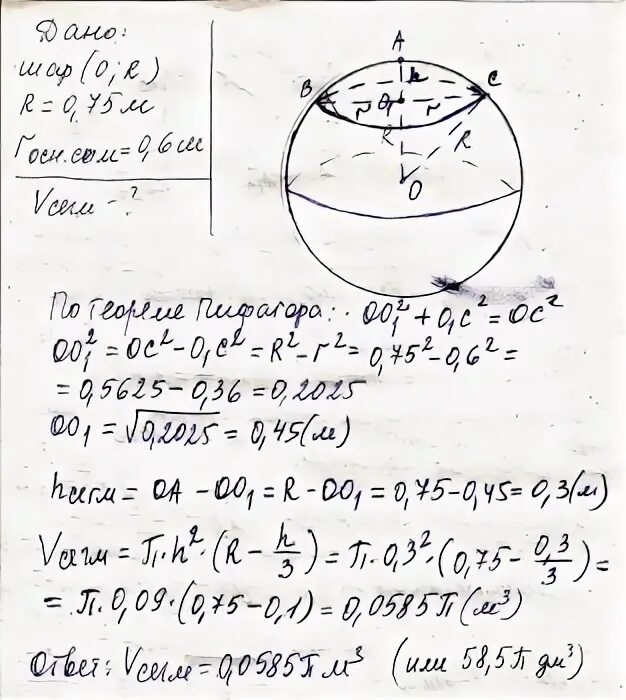 Дано:
шар (O; R)
R = 0,75 м
rосн.сегм = 0,6 м
Vсегм - ?
A
h
B
C
r
O₁
r
R
R
O
По теореме Пифагора: OO₁² + O₁C² = OC²
OO₁² = OC² - O₁C² = R² - r² = 0,75² - 0,6² =
= 0,5625 - 0,36 = 0,2025
OO₁ = √0,2025 = 0,45 (м)
hсегм = OA - OO₁ = R - OO₁ = 0,75 - 0,45 = 0,3 (м)
Vсегм = π·h²·(R - h/3) = π·0,3²·(0,75 - 0,3/3) =
= π·0,09·(0,75 - 0,1) = 0,0585π (м³)
Ответ: Vсегм = 0,0585π м³ (или 58,5π дм³)